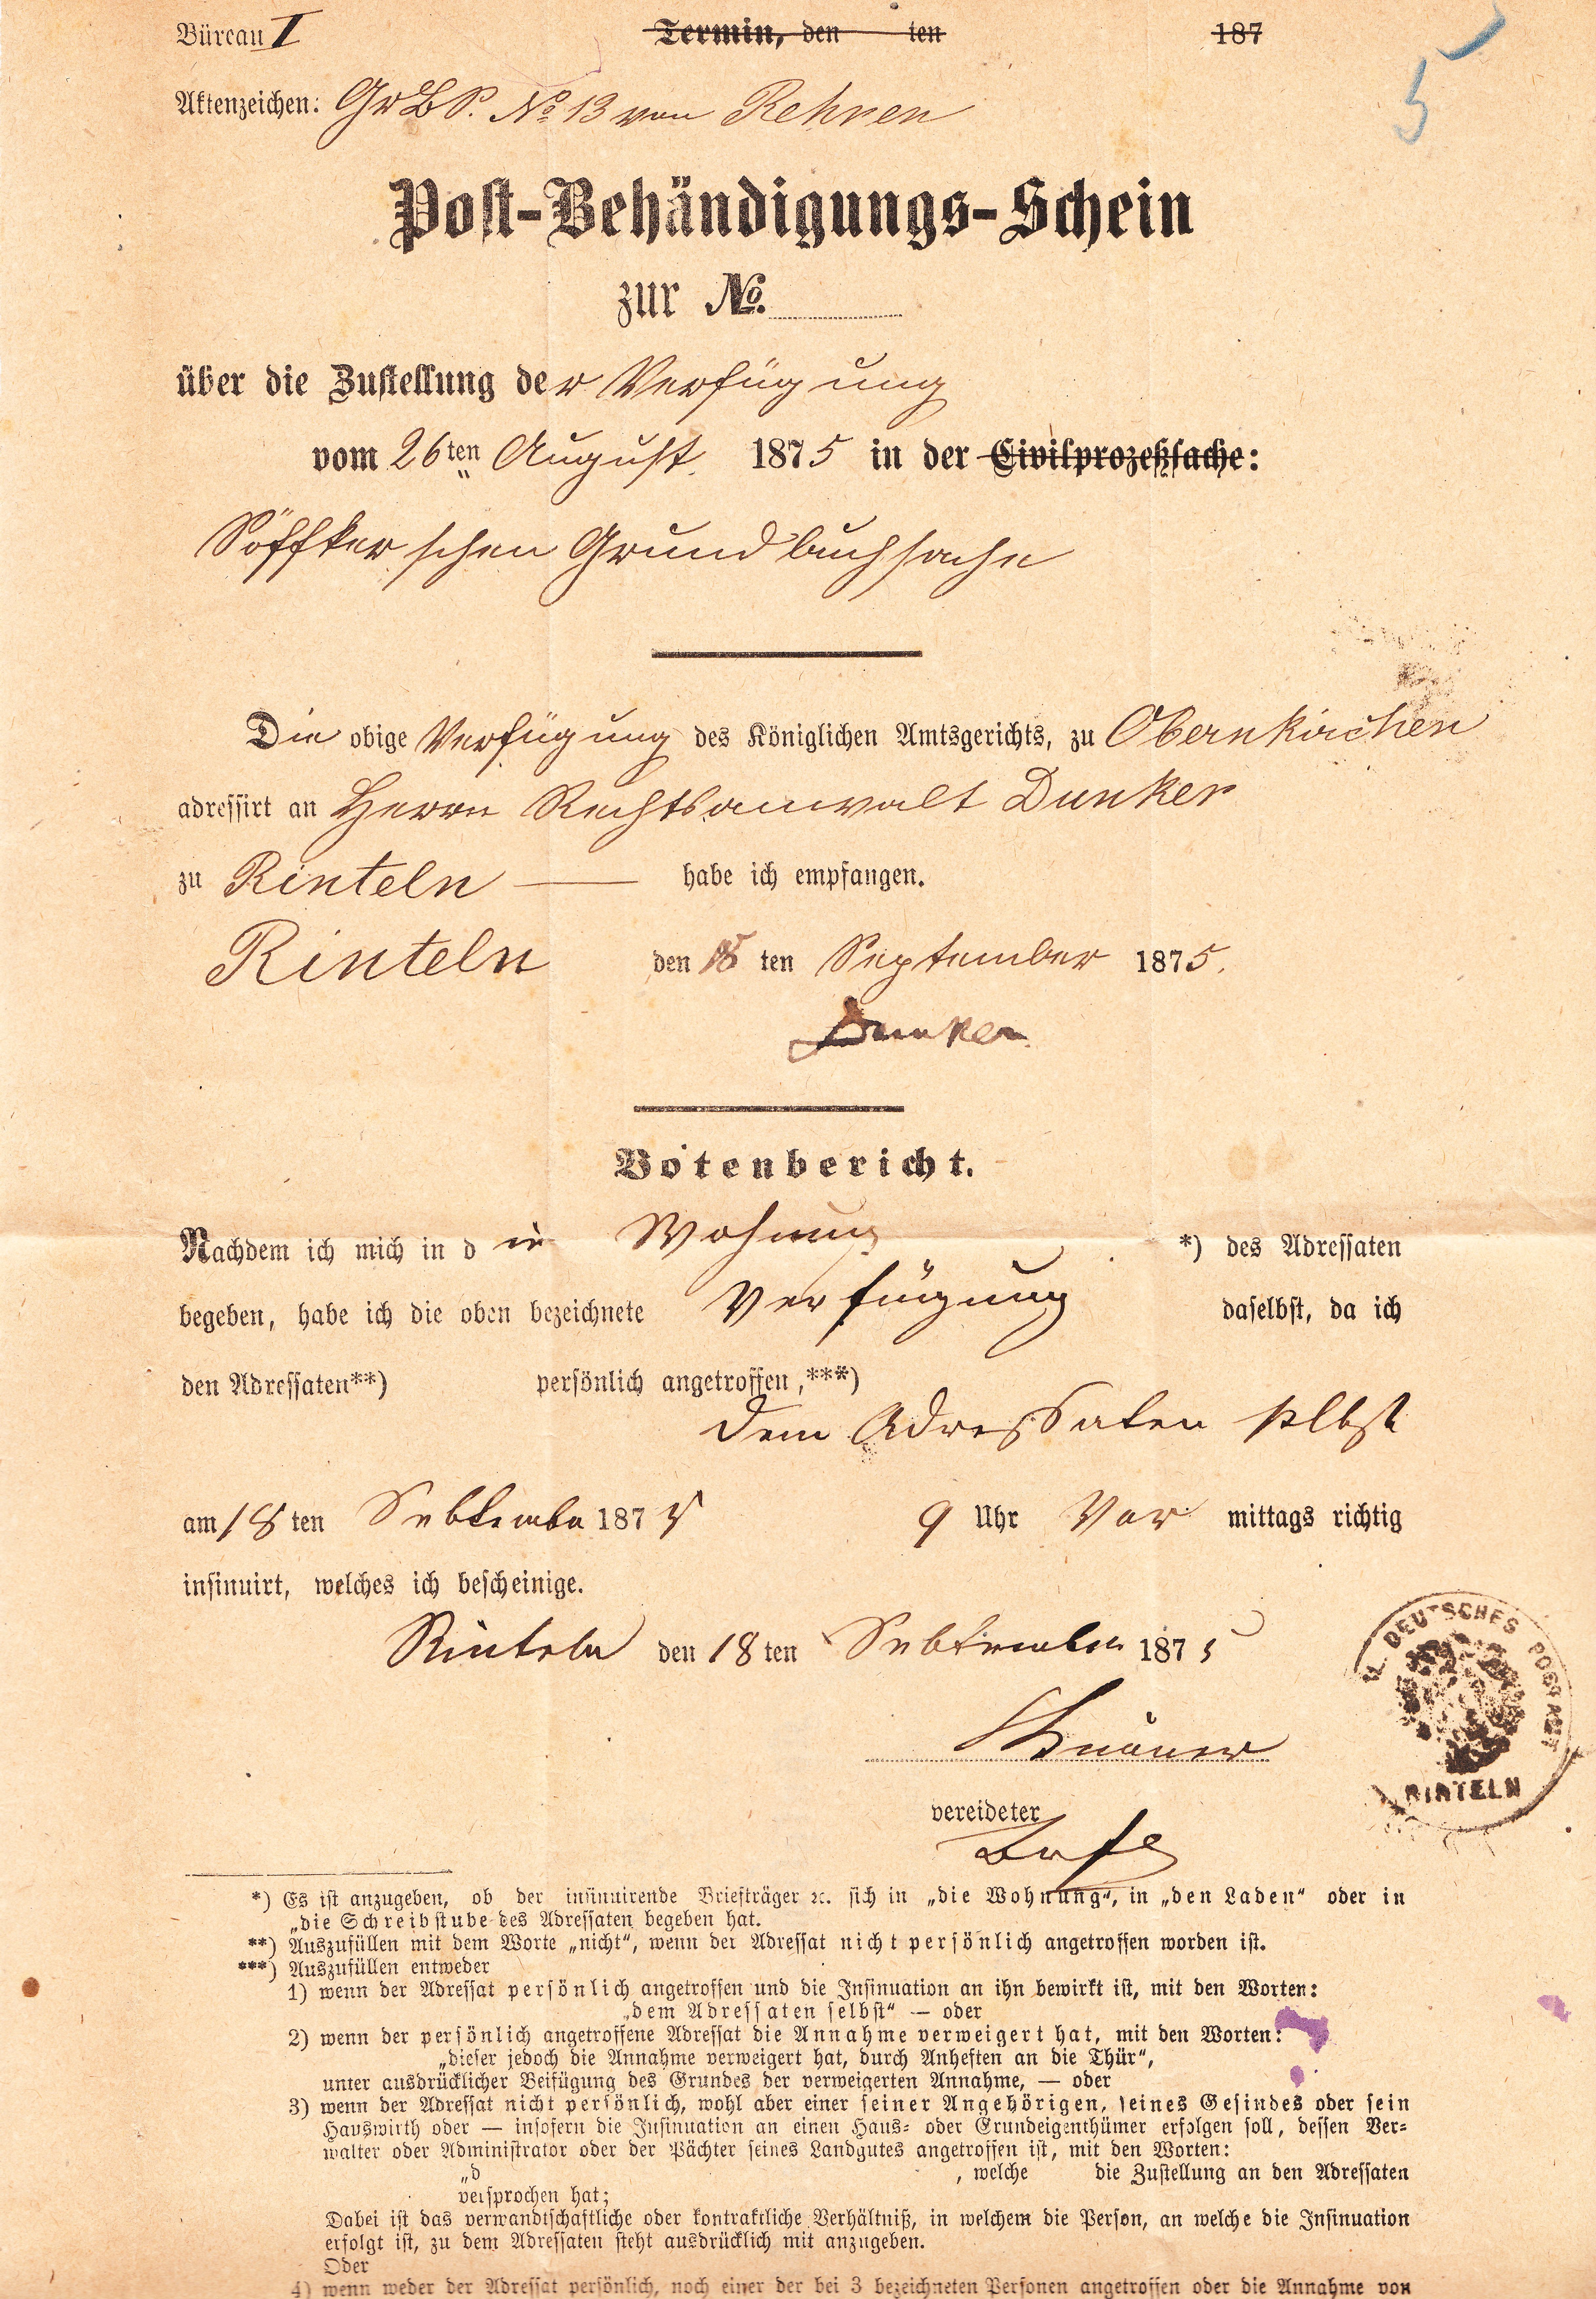 Büreau I Termin, den ten 187
5
Aktenzeichen: GrBP. No 13 von Rehren
Post-Behändigungs-Schein
zur No.
über die Zustellung der Verfügung
vom 26ten August 1875 in der Civilprozeßsache:
Söffker'schen Grundbuchsache
Die obige Verfügung des Königlichen Amtsgerichts, zu Obernkirchen
adressirt an Herrn Rechtsanwalt Dunker
zu Rinteln — habe ich empfangen.
Rinteln den 18 ten September 1875.
Dunker
Botenbericht.
Nachdem ich mich in d ie Wohnung *) des Adressaten
begeben, habe ich die oben bezeichnete Verfügung daselbst, da ich
den Adressaten**) persönlich angetroffen,***)
dem Adressaten selbst
am 18 ten Sebtember 1875 9 Uhr Vor mittags richtig
insinuirt, welches ich bescheinige.
Rinteln den 18 ten Sebtember 1875
vereideter
DEUTSCHES POSTAMT
RINTELN
*) Es ist anzugeben, ob der insinuirende Briefträger ꝛc. sich in „die Wohnung“, in „den Laden“ oder in
„die Schreibstube des Adressaten begeben hat.
**) Auszufüllen mit dem Worte „nicht“, wenn der Adressat nicht persönlich angetroffen worden ist.
***) Auszufüllen entweder
1) wenn der Adressat persönlich angetroffen und die Insinuation an ihn bewirkt ist, mit den Worten:
„dem Adressaten selbst“ — oder
2) wenn der persönlich angetroffene Adressat die Annahme verweigert hat, mit den Worten:
„dieser jedoch die Annahme verweigert hat, durch Anheften an die Thür“,
unter ausdrücklicher Beifügung des Grundes der verweigerten Annahme, — oder
3) wenn der Adressat nicht persönlich, wohl aber einer seiner Angehörigen, seines Gesindes oder sein
Hauswirth oder — insofern die Insinuation an einen Haus- oder Grundeigenthümer erfolgen soll, dessen Ver-
walter oder Administrator oder der Pächter seines Landgutes angetroffen ist, mit den Worten:
„d , welche die Zustellung an den Adressaten
versprochen hat;
Dabei ist das verwandtschaftliche oder kontraktliche Verhältniß, in welchem die Person, an welche die Insinuation
erfolgt ist, zu dem Adressaten steht ausdrücklich mit anzugeben.
Oder
4) wenn weder der Adressat persönlich, noch einer der bei 3 bezeichneten Personen angetroffen oder die Annahme von